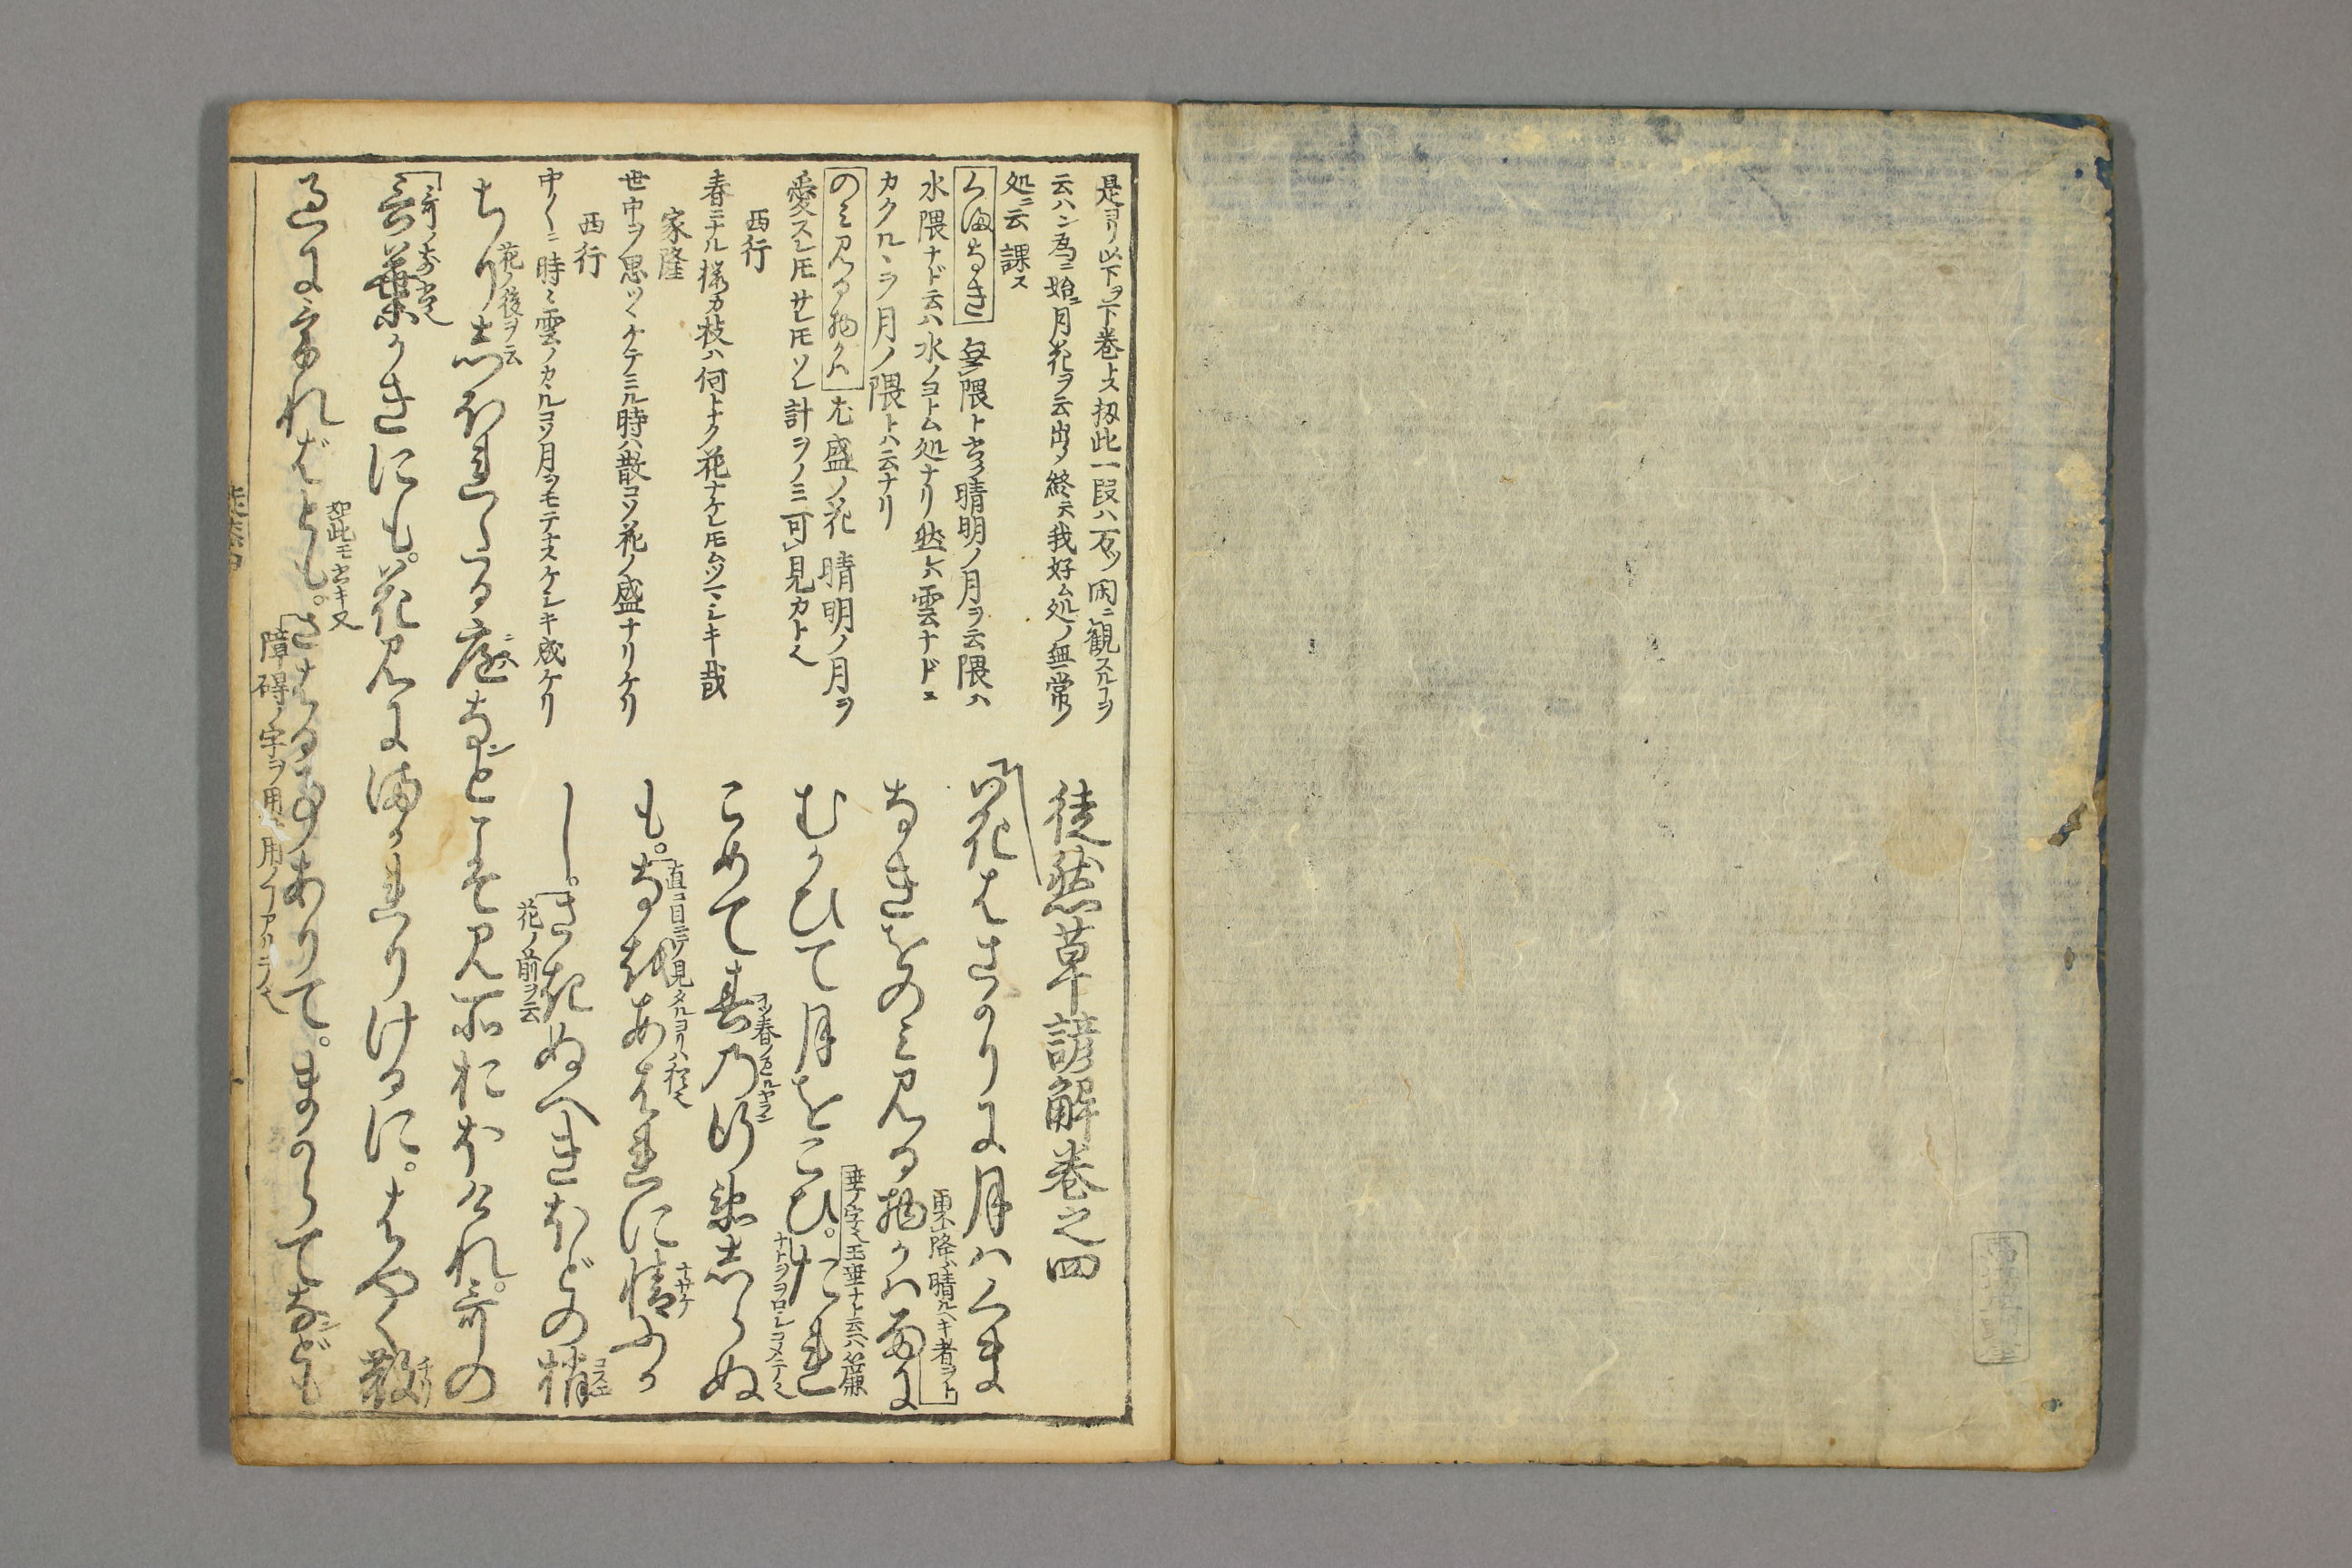 徒然草諺解巻之四
是ヨリ以下ヲ下巻トス扨此一段ハ万ツ閑ニ観スルコヲ
云ハン為ニ始ニ月花ヲ云出シ終ニ我好ム処ノ無常ノ
処ニ云課ス
くまなき 無隈ト書ク晴明ノ月ヲ云隈ハ
水隈ナド云ハ水ノヨトム処ナリ然レハ雲ナドニ
カクルヽヲ月ノ隈トハ云ナリ
のミ見る物かハ 尤盛ノ花晴明ノ月ヲ
愛スレ𪜈サレ𪜈ソレ計ヲノミ可見カト也
西行
春ニナル桜カ枝ハ何トナク花ナケレ𪜈ムツマシキ哉
家隆
世中ヲ思ツヽケテミル時ハ散コソ花ノ盛ナリケリ
西行
中〳〵ニ時々雲ノカヽルコソ月ヲモテナスケシキ成ケリ
花はさかりに月ハくま
なきをのミ見る物かハ雨に
むかひて月をこひ。たれ
垂ノ字也玉垂ナト云ハ簾
ナトヲヲロシコメテ也
こめて春乃行衛志らぬ
も。なをあはれに情ふか
ナサケ
し。さきぬへきほどの梢
コスエ
花ノ前ヲ云
ちり志ほれたる庭なとこそ見所おほけれ。哥の
花ノ後ヲ云
言葉かきにも。花見にまかれりけるに。はやく散
過にけれバとも。さはる事ありて。まからてなども
如此モ書キ又
障碍ノ字ヲ用